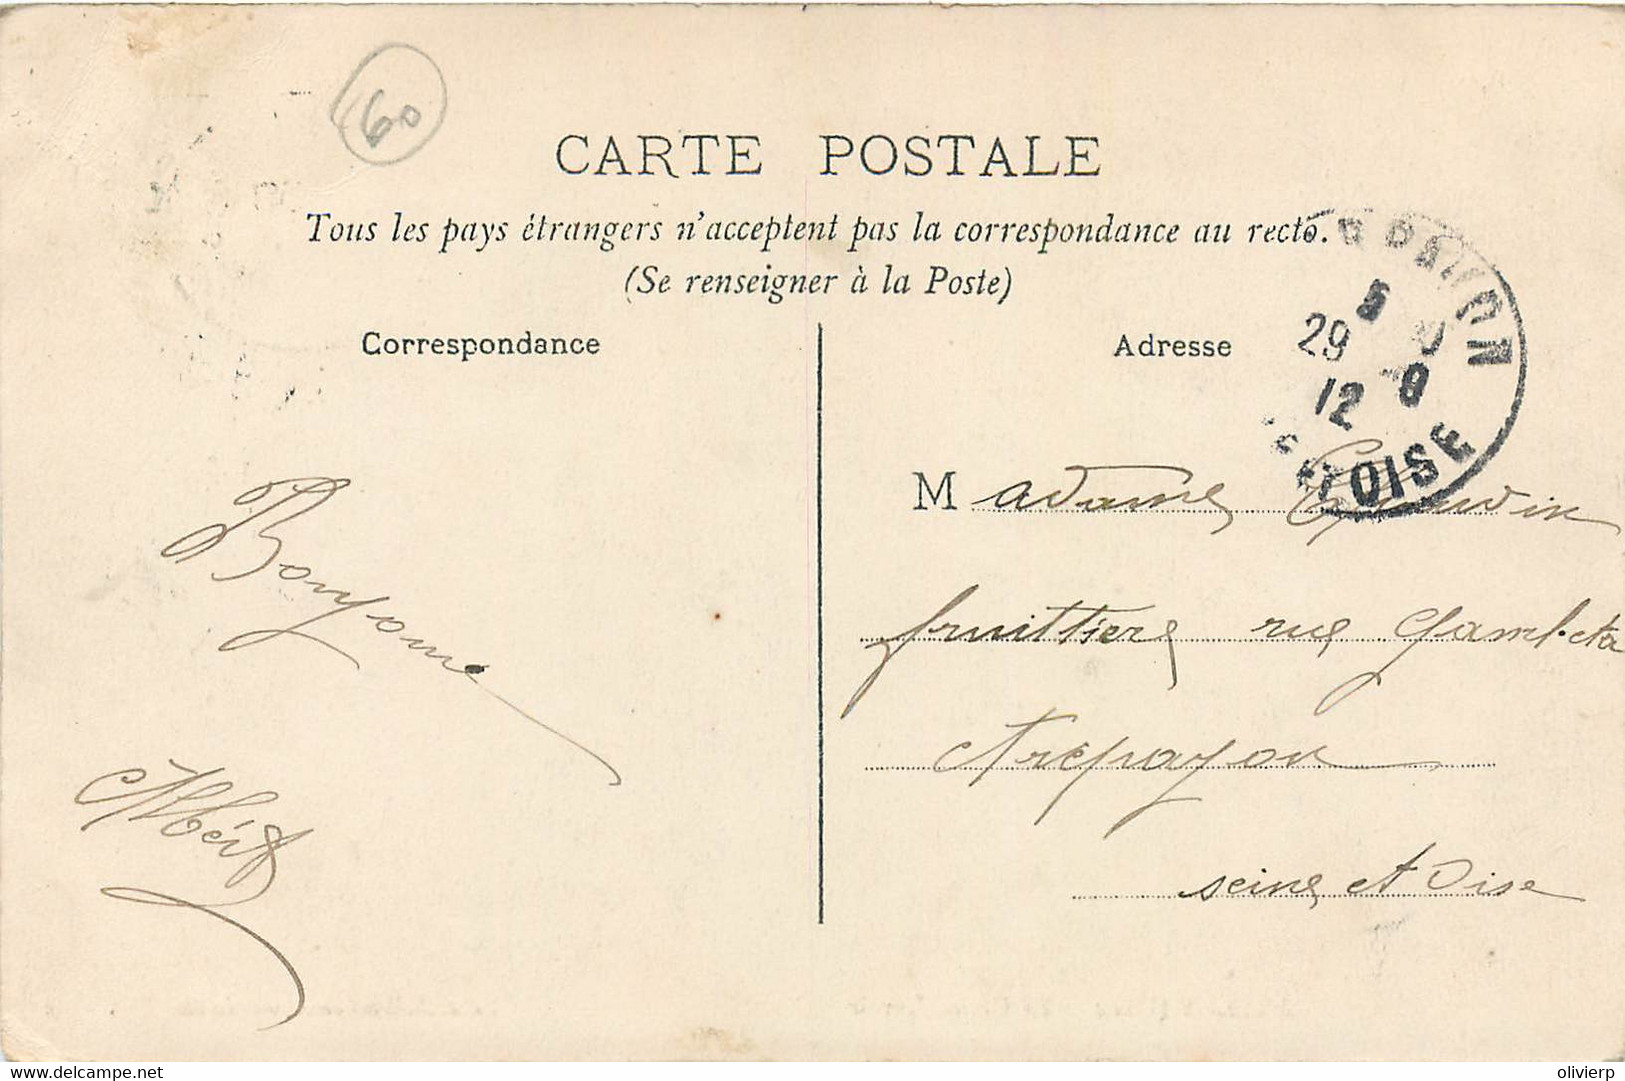 60
CARTE POSTALE
Tous les pays étrangers n'acceptent pas la correspondance au recto.
(Se renseigner à la Poste)
Correspondance
Adresse
5
29
12 9
OISE
Madame Gaudin
fruitière rue Gambetta
Arpajon
seine et Oise
Albert
delcampe.net
olivierp